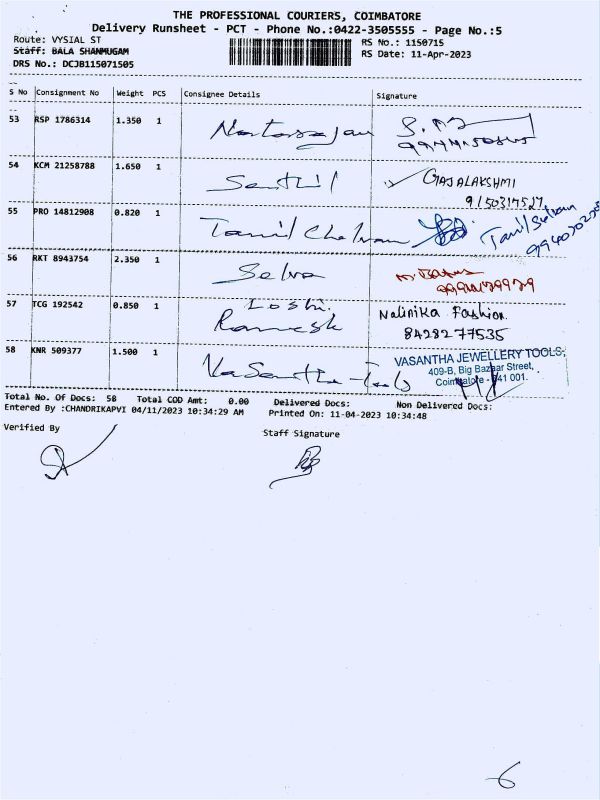 THE PROFESSIONAL COURIERS, COIMBATORE
Delivery Runsheet - PCT - Phone No.:0422-3505555 - Page No.:5
Route: VYSIAL ST
RS No.: 1150715
Staff: BALA SHANMUGAM
RS Date: 11-Apr-2023
DRS No.: DCJB115071505
S No Consignment No Weight PCS Consignee Details Signature
53 RSP 1786314 1.350 1 Natarajan
54 KCM 21258788 1.650 1 Senthil GAJALAKSHMI
9150317527
55 PRO 14812908 0.820 1 Tamil Chelvan Tamil Selvan
56 RKT 8943754 2.350 1 Selva
57 TCG 192542 0.850 1 Loshi. Nalinika Fashion.
Ramesh 8428277535
58 KNR 509377 1.500 1 Vasantha-Tools VASANTHA JEWELLERY TOOLS,
409-B, Big Bazaar Street,
Coimbatore - 641 001.
Total No. Of Docs: 58 Total COD Amt: 0.00 Delivered Docs: Non Delivered Docs:
Entered By :CHANDRIKAPVI 04/11/2023 10:34:29 AM Printed On: 11-04-2023 10:34:48
Verified By
Staff Signature
6